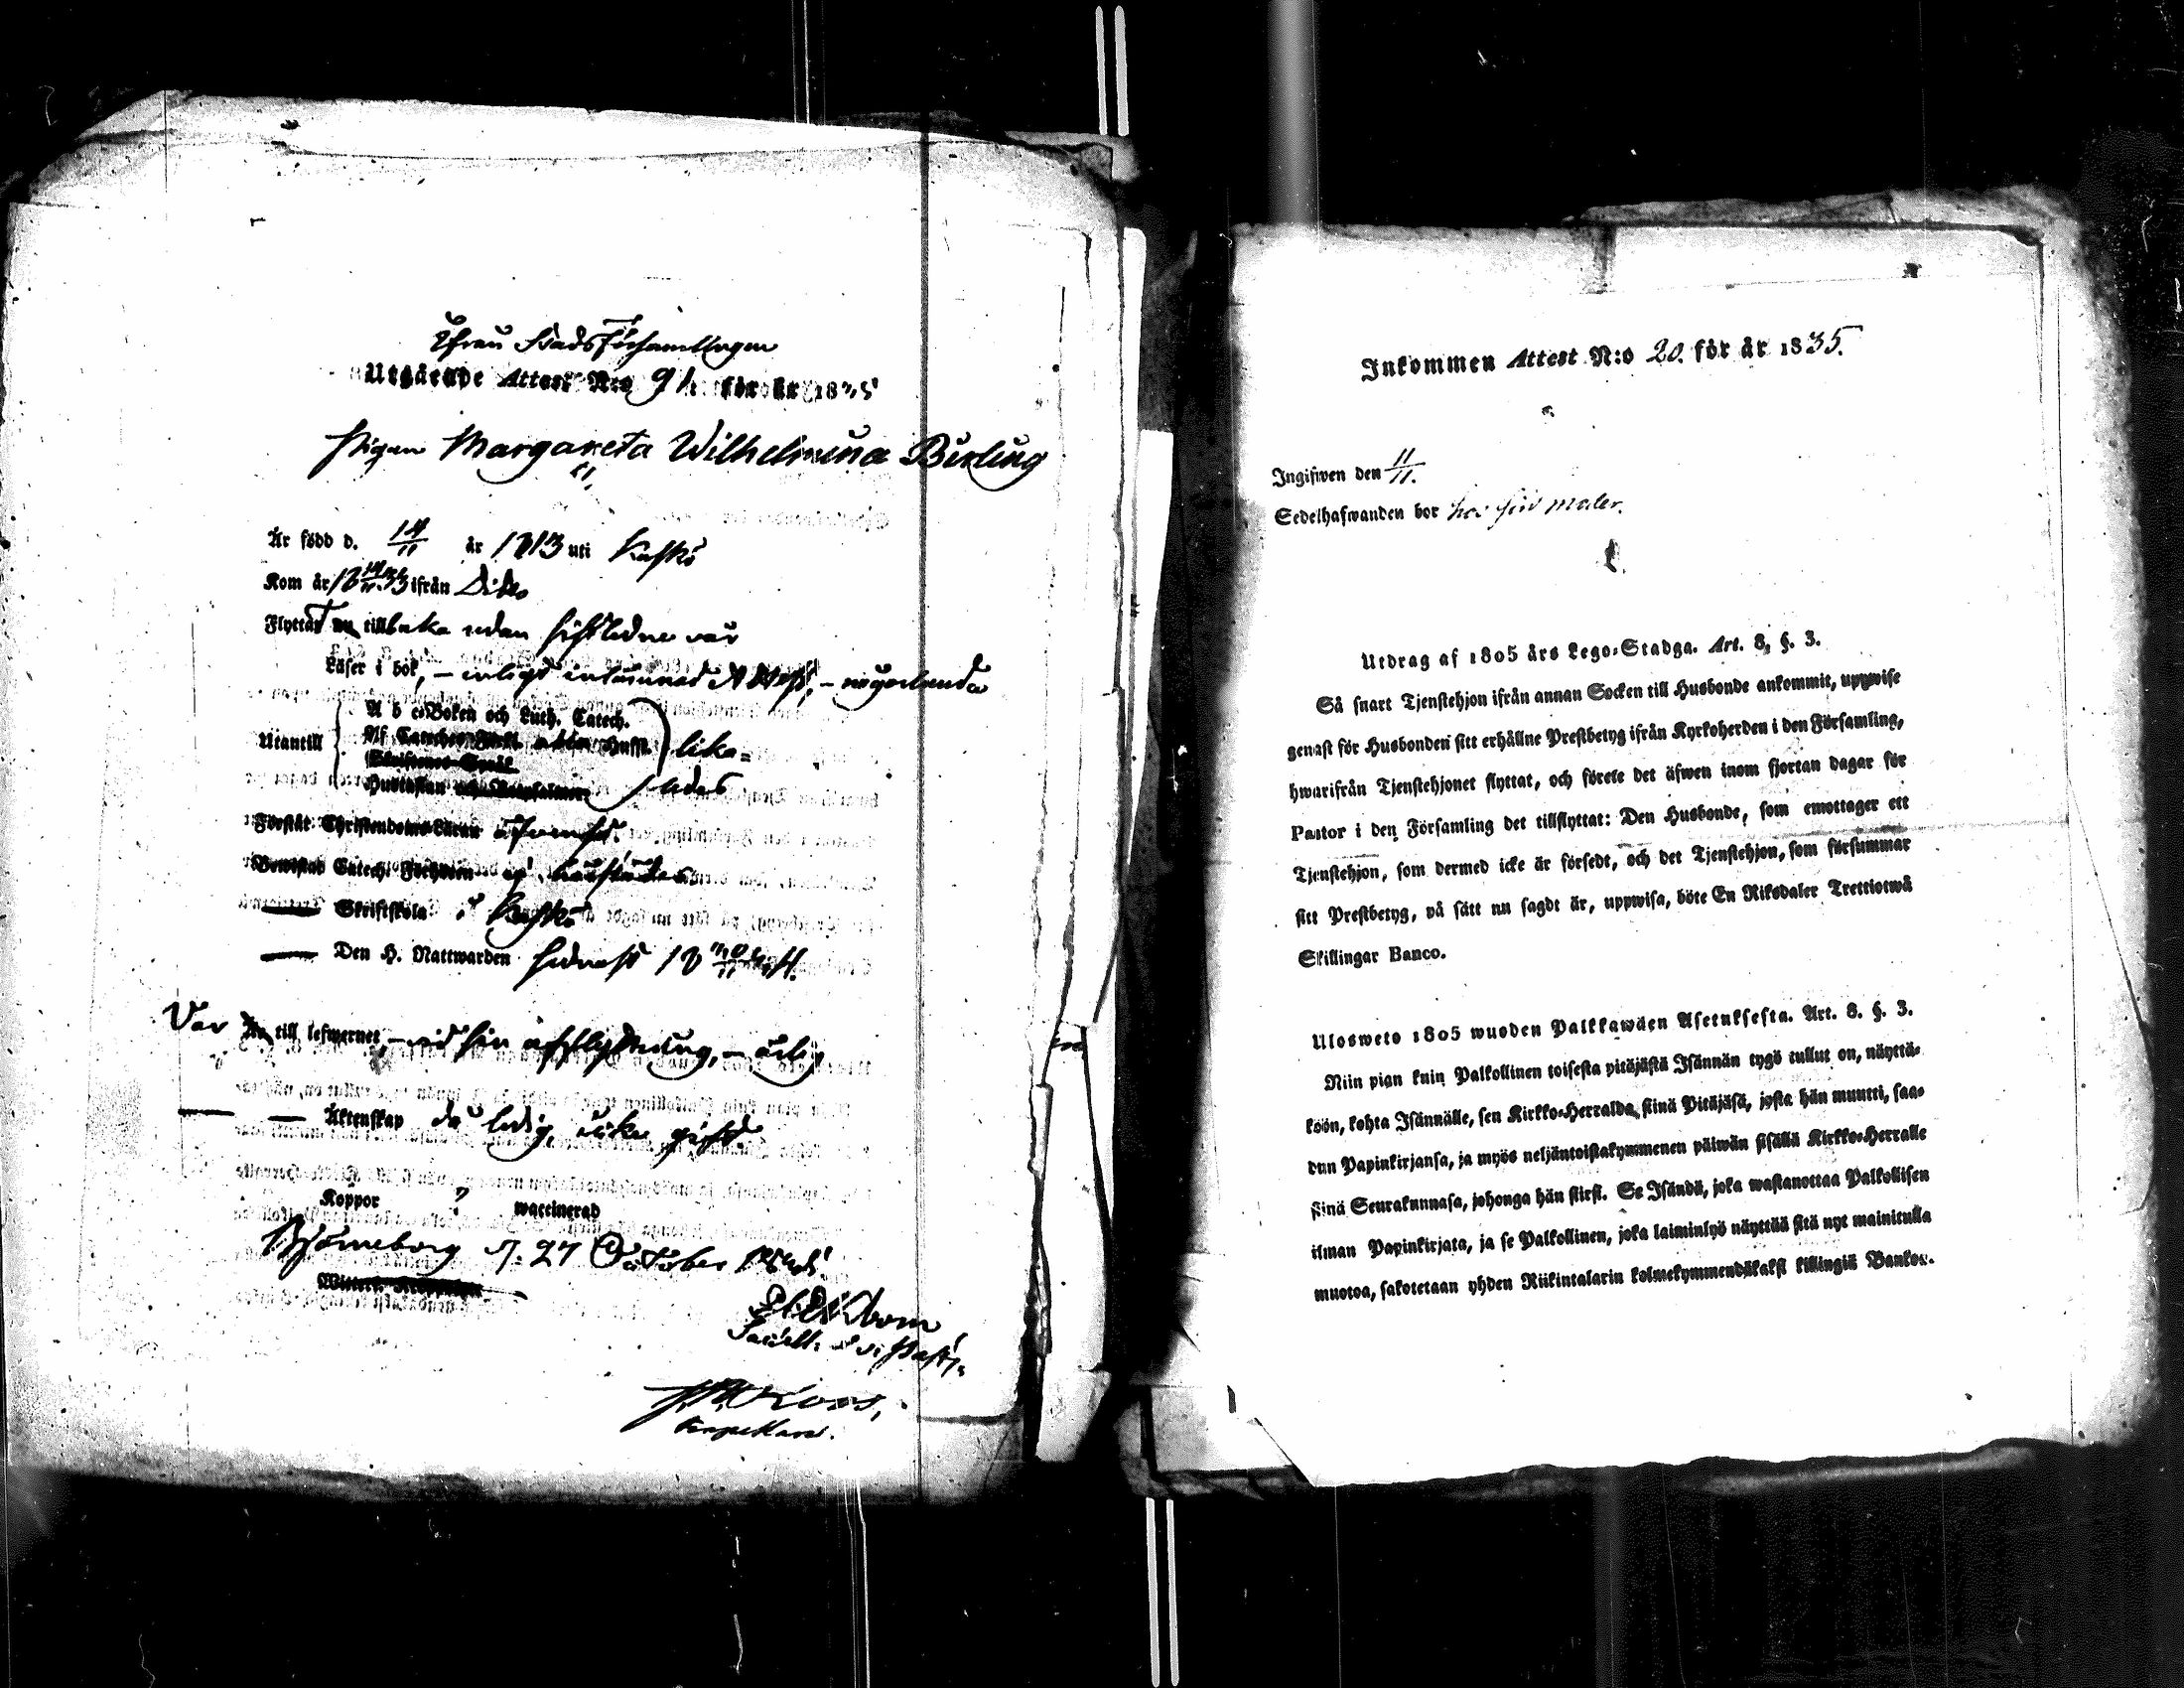 Ifrån Stadsförsamlingen
Utgående Attest N:o 91 för år 1835
Pigan Margareta Wilhelmina Birling
Är född d. 14/11 år 1813 uti Kaskö
Kom år 18 14/11 33 ifrån Dito
Flyttat nu tillbaka sedan sistledne vår
Läser i bok, – enligt inlämnad Attest, – någorlunda
Utantill
A b c-Boken och Luth. Catech.
Husst.
Skriftenes Språk
Hustaflan och
lika-
ledes
Förstår Christendoms Läran
Bewistat Catech. Förhören
Skriftskola i Kaskö
Den H. Nattwarden senast 18
Var Är till lefwernet, – vid sin afflyttning, – ärlig
Äktenskap då ledig, icke gift.
Koppor ? waccinerad
Björneborg d. 27 October 1835.
Kapellan.
Inkommen Attest N:o 20. för år 1835.
Ingifwen den 11/11.
Sedelhafwanden bor hos
Utdrag af 1805 års Lego-Stadga. Art. 8, §. 3.
Så snart Tjenstehjon ifrån annan Socken till Husbonde ankommit, uppwise
genast för Husbonden sitt erhållne Prestbetyg ifrån Kyrkoherden i den Församling,
hwarifrån Tjenstehjonet flyttat, och förete det äfwen inom fjortan dagar för
Pastor i den Församling det tillflyttat: Den Husbonde, som emottager ett
Tjenstehjon, som dermed icke är försedt, och det Tjenstehjon, som försummar
sitt Prestbetyg, på sätt nu sagdt är, uppwisa, böte En Riksdaler Trettiotwå
Skillingar Banco.
Ulosweto 1805 wuoden Palkkawäen Asetuksesta. Art. 8. §. 3.
Niin pian kuin Palkollinen toisesta pitäjästä Isännän tygö tullut on, näyttä-
köön, kohta Isännälle, sen Kirkko-Herralda siinä Pitäjäsä, josta hän muutti, saa-
dun Papinkirjansa, ja myös neljäntoistakymmenen päiwän sisällä Kirkko-Herralle
siinä Seurakunnasa, johonga hän siirsi. Se Isändä, joka wastanottaa Palkollisen
ilman Papinkirjata, ja se Palkollinen, joka laiminlyö näyttää sitä nyt mainitulla
muotoa, sakotetaan yhden Riikintalarin kolmekymmendäkaksi killingiä Bankos.